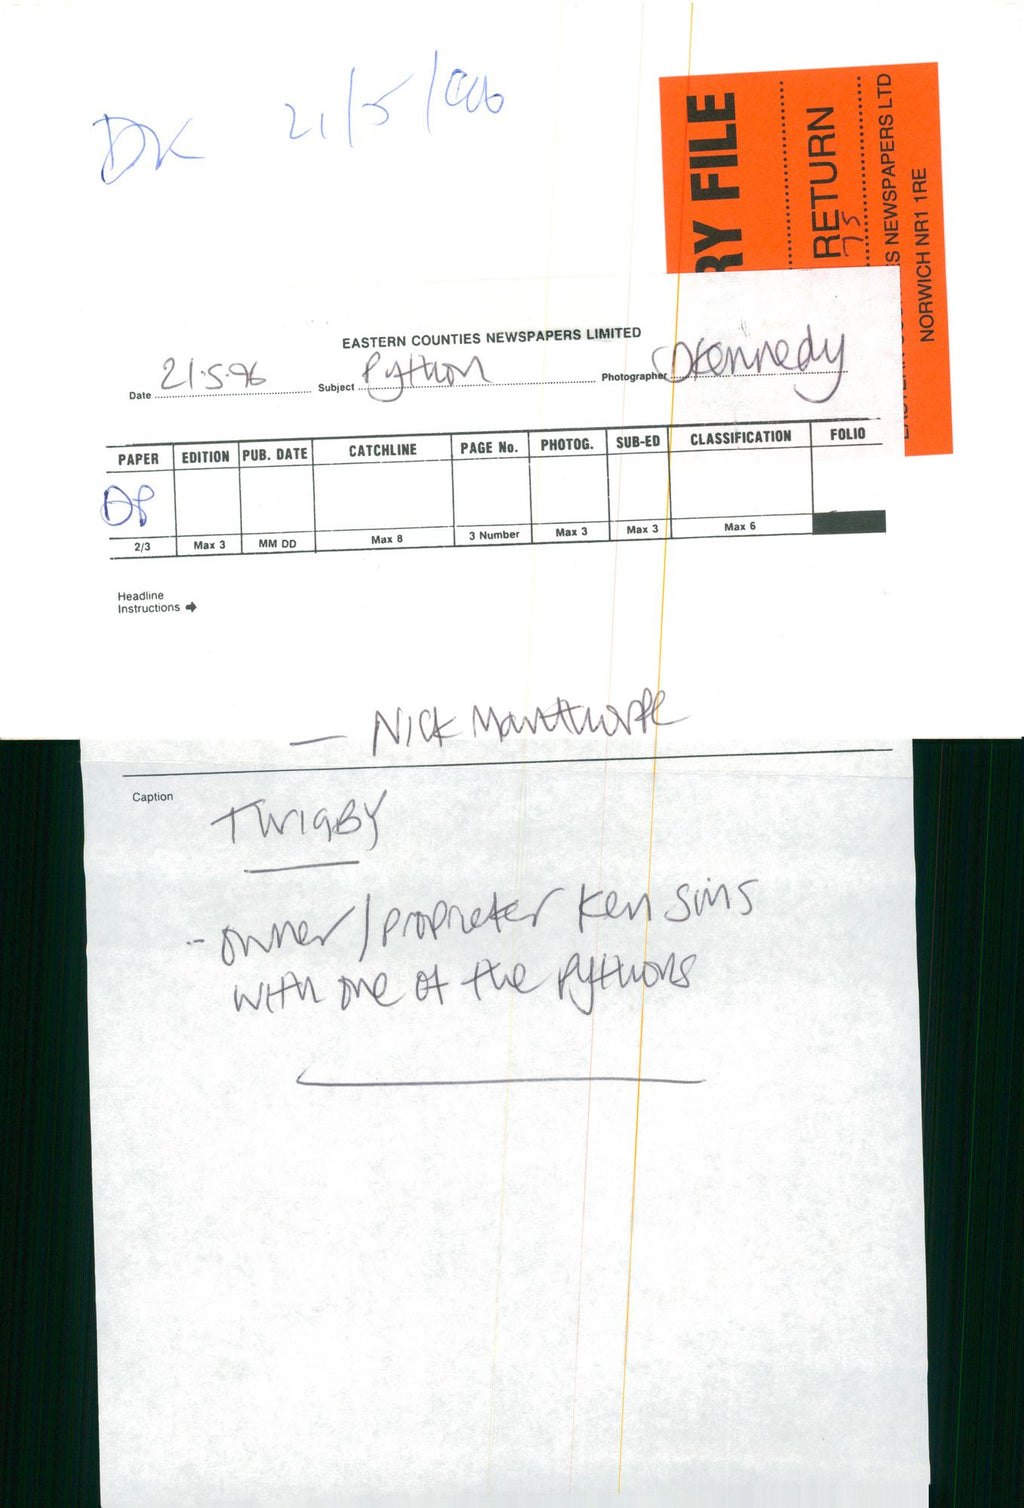 DK 21/5/96
RY FILE
RETURN
75
S NEWSPAPERS LTD
NORWICH NR1 1RE
EASTERN COUNTIES NEWSPAPERS LIMITED
Date 21.5.96 Subject Python Photographer DKennedy
PAPER EDITION PUB. DATE CATCHLINE PAGE No. PHOTOG. SUB-ED CLASSIFICATION FOLIO
2/3 Max 3 MM DD Max 8 3 Number Max 3 Max 3 Max 6
Headline
Instructions →
— Nick Manthorpe
Caption
TWIGBY
- owner/propreter Ken Sims
with one of the pythons